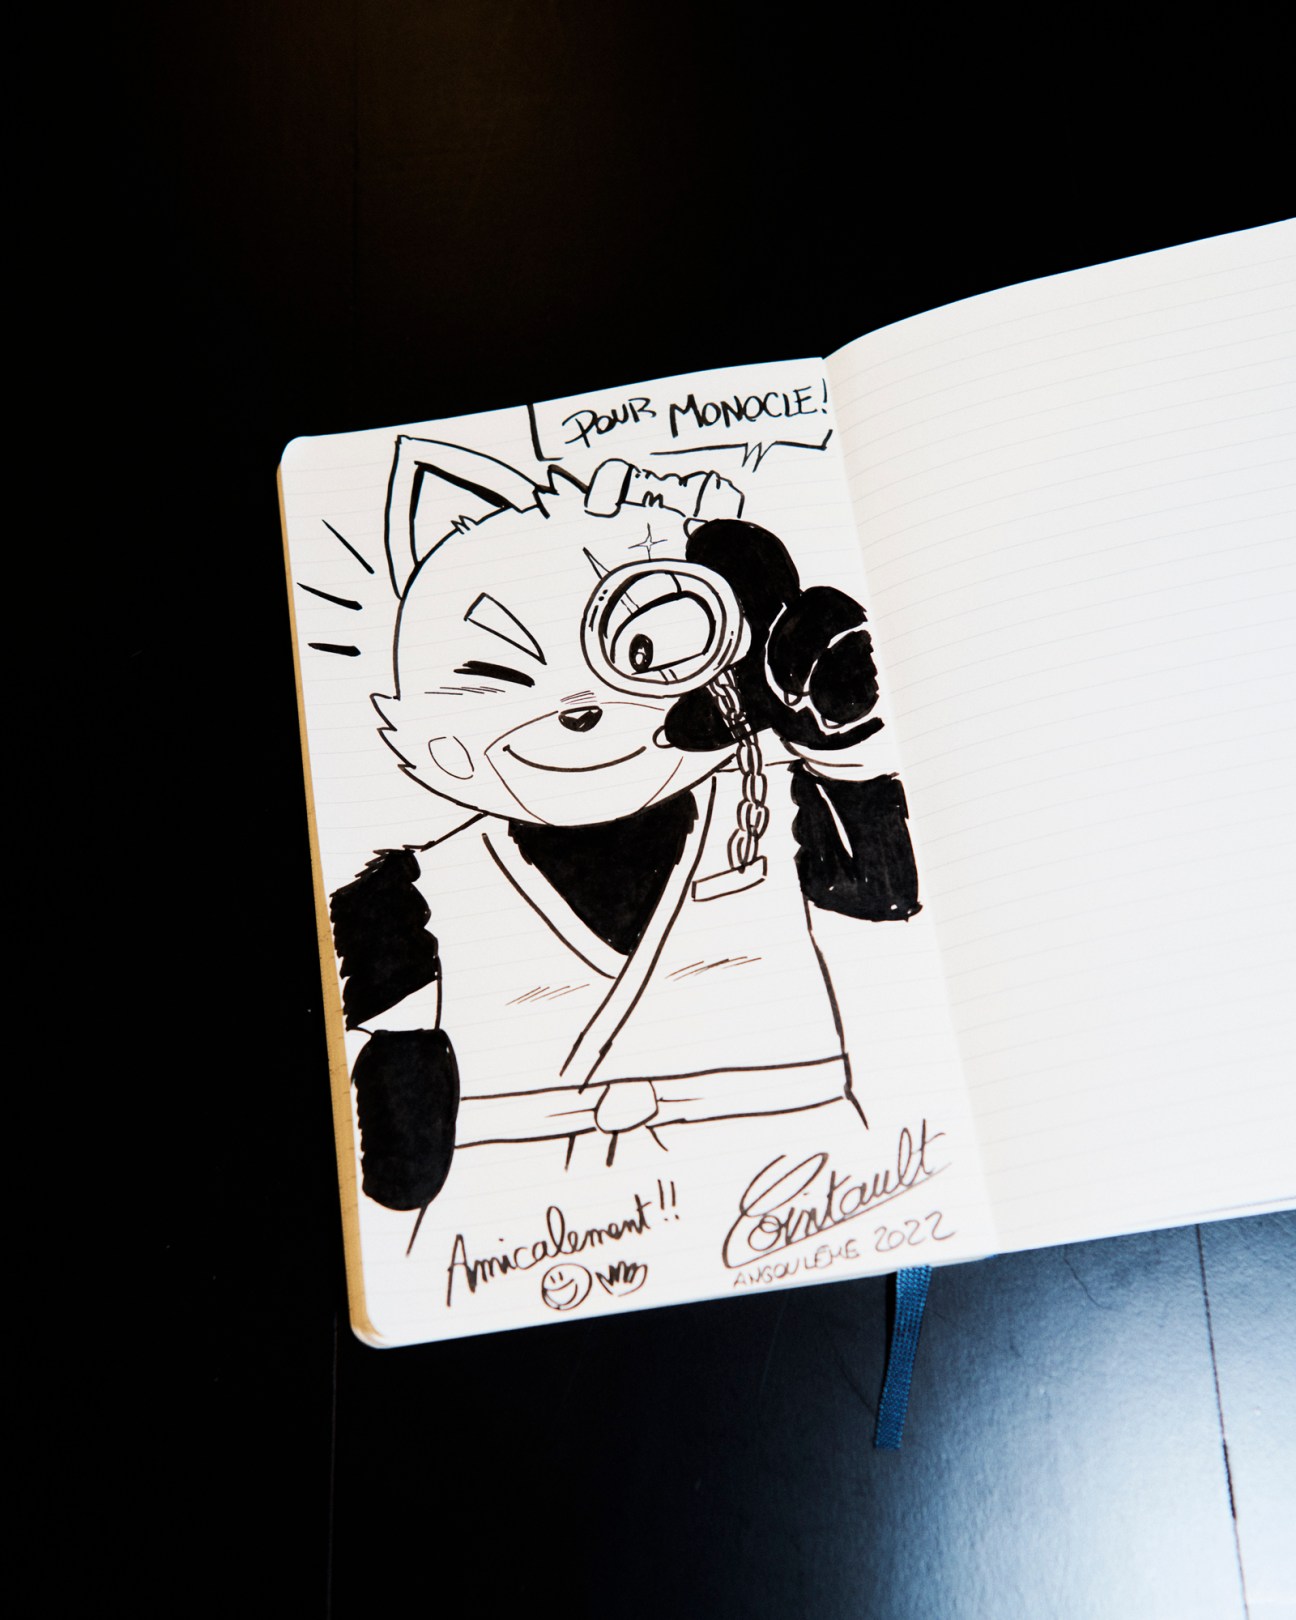 POUR MONOCLE!
Amicalement!!
Cointault
ANGOULÊME 2022